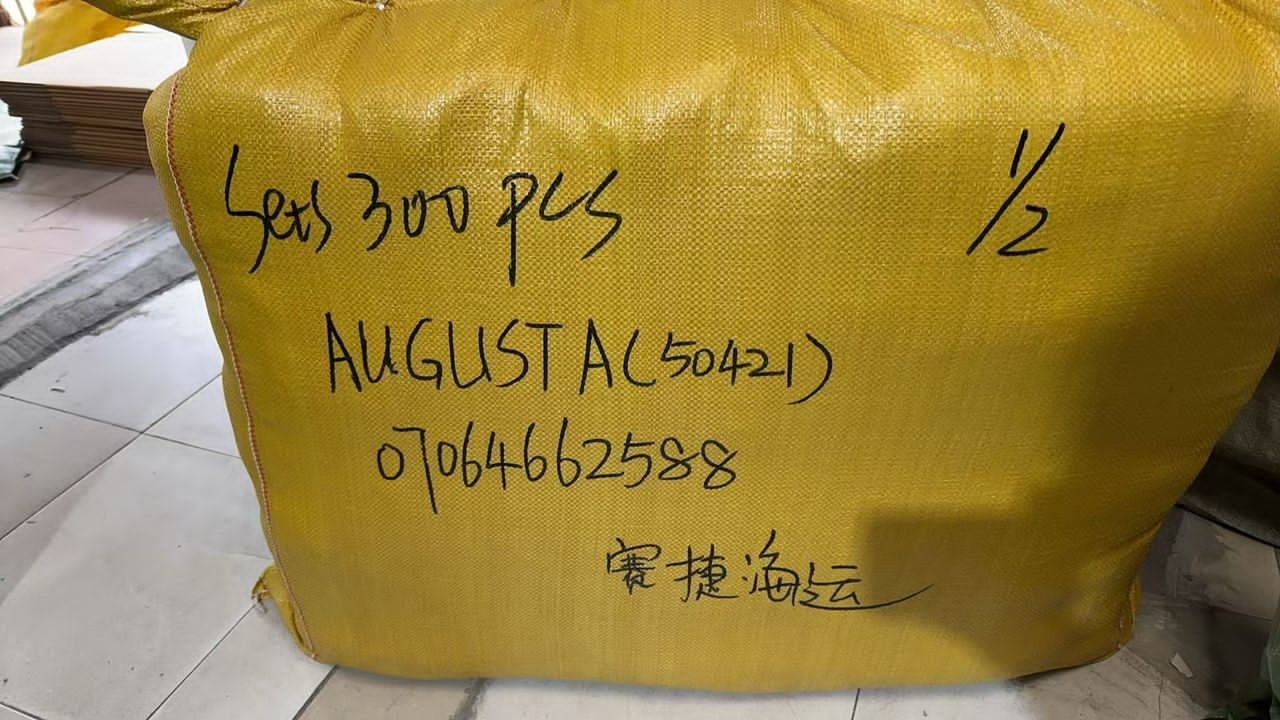 Sets 300 pcs
1/2
AUGUSTA (50421)
07064662588
赛捷海运